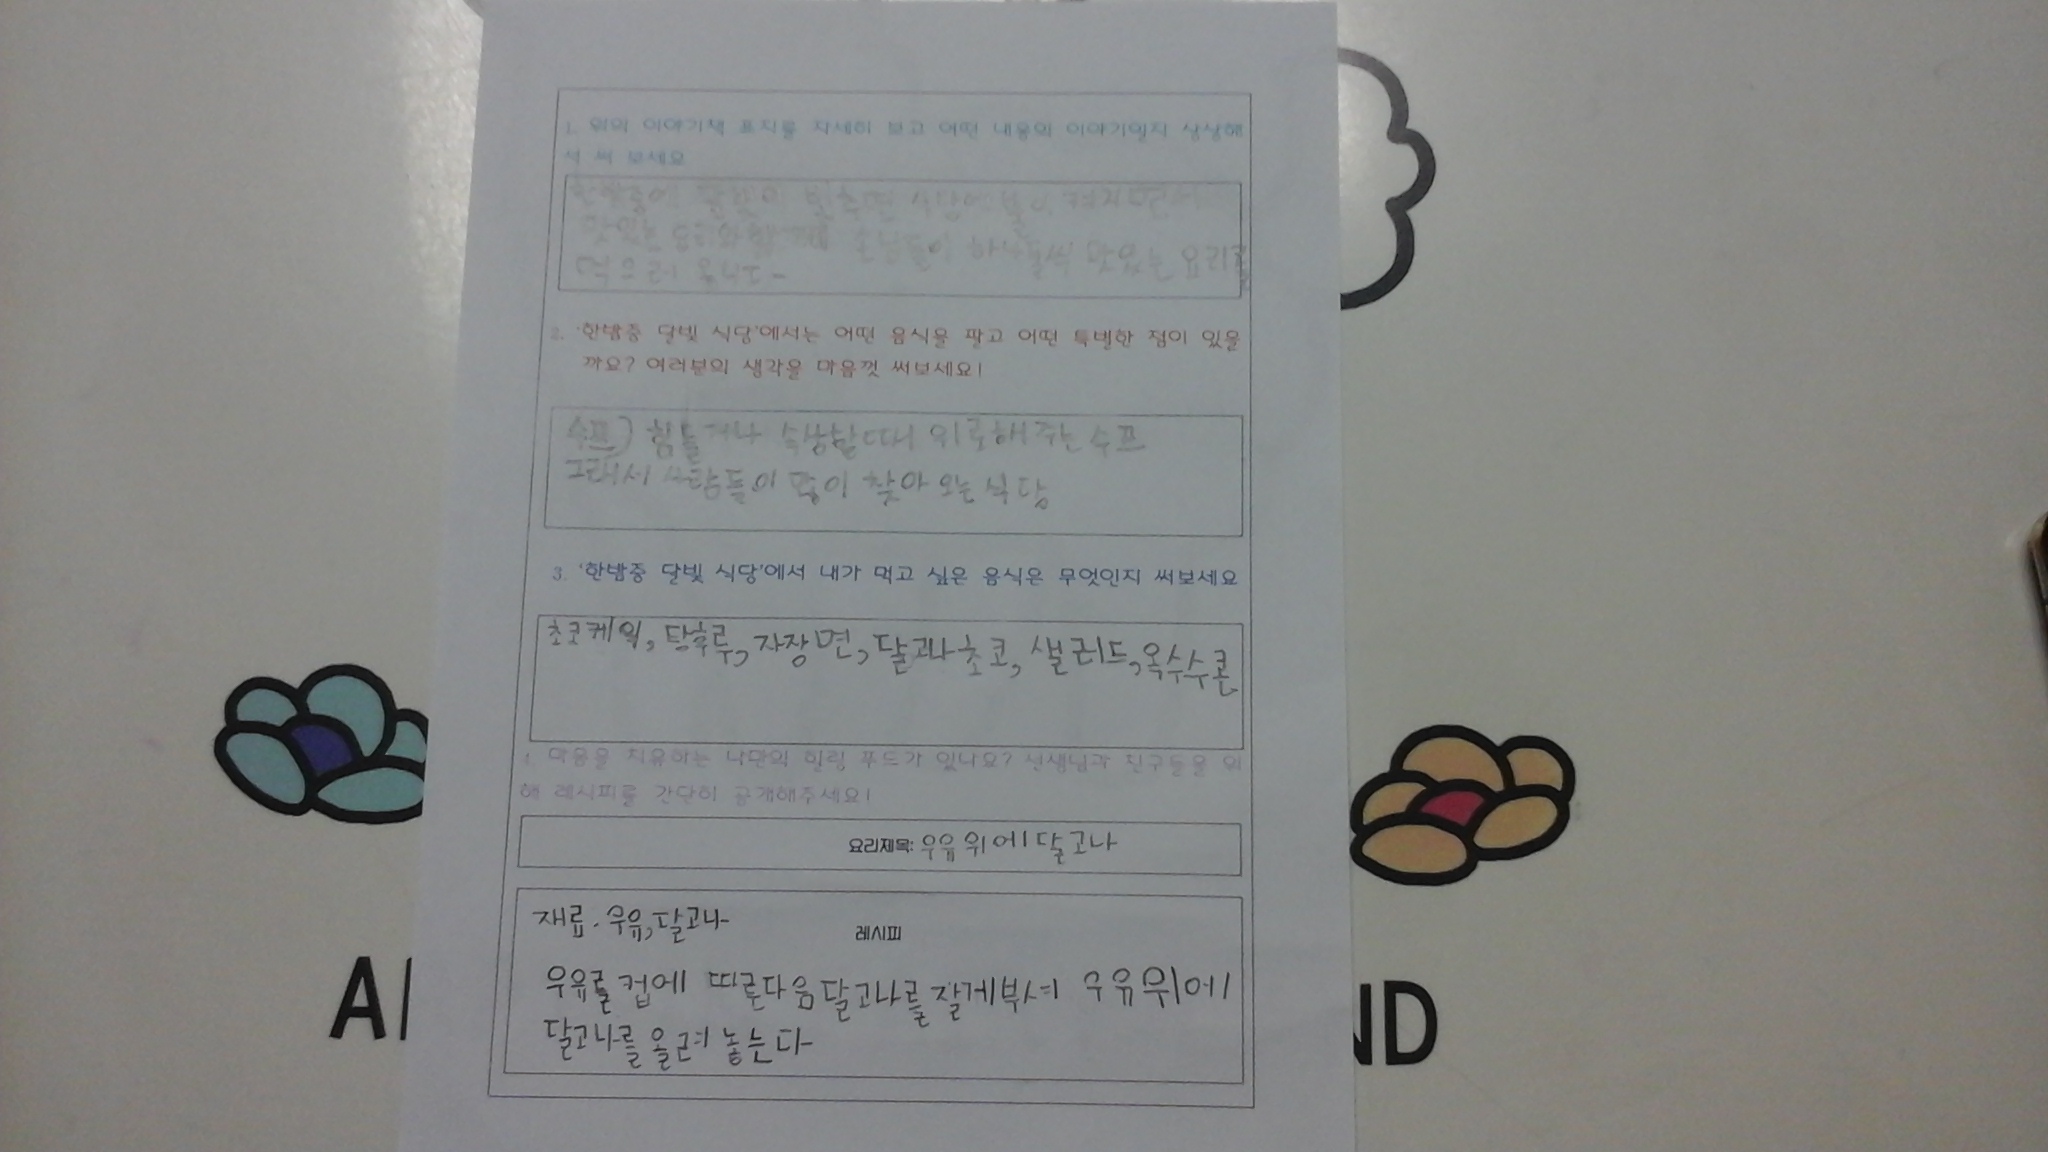 1. 위의 이야기책 표지를 자세히 보고 어떤 내용의 이야기일지 상상해
서 써 보세요
한밤중에 달빛이 비추면 식당에 불이 켜지면서
맛있는 요리와 함께 손님들이 하나둘씩 맛있는 요리를
먹으러
2. '한밤중 달빛 식당'에서는 어떤 음식을 팔고 어떤 특별한 점이 있을
까요? 여러분의 생각을 마음껏 써보세요!
수프) 힘들거나 속상할때 위로해 주는 수프
그래서 사람들이 많이 찾아 오는 식당
3. '한밤중 달빛 식당'에서 내가 먹고 싶은 음식은 무엇인지 써보세요
초코케익, 탕후루, 자장면, 달과나초코, 샐러드, 옥수수콘
4. 마음을 치유하는 나만의 힐링 푸드가 있나요? 선생님과 친구들을 위
해 레시피를 간단히 공개해주세요!
요리제목: 우유위에달고나
재료. 우유, 달고나
레시피
우유를 컵에 따른다음 달고나를 잘게부셔 우유위에
달고나를 올려 놓는다
A ND